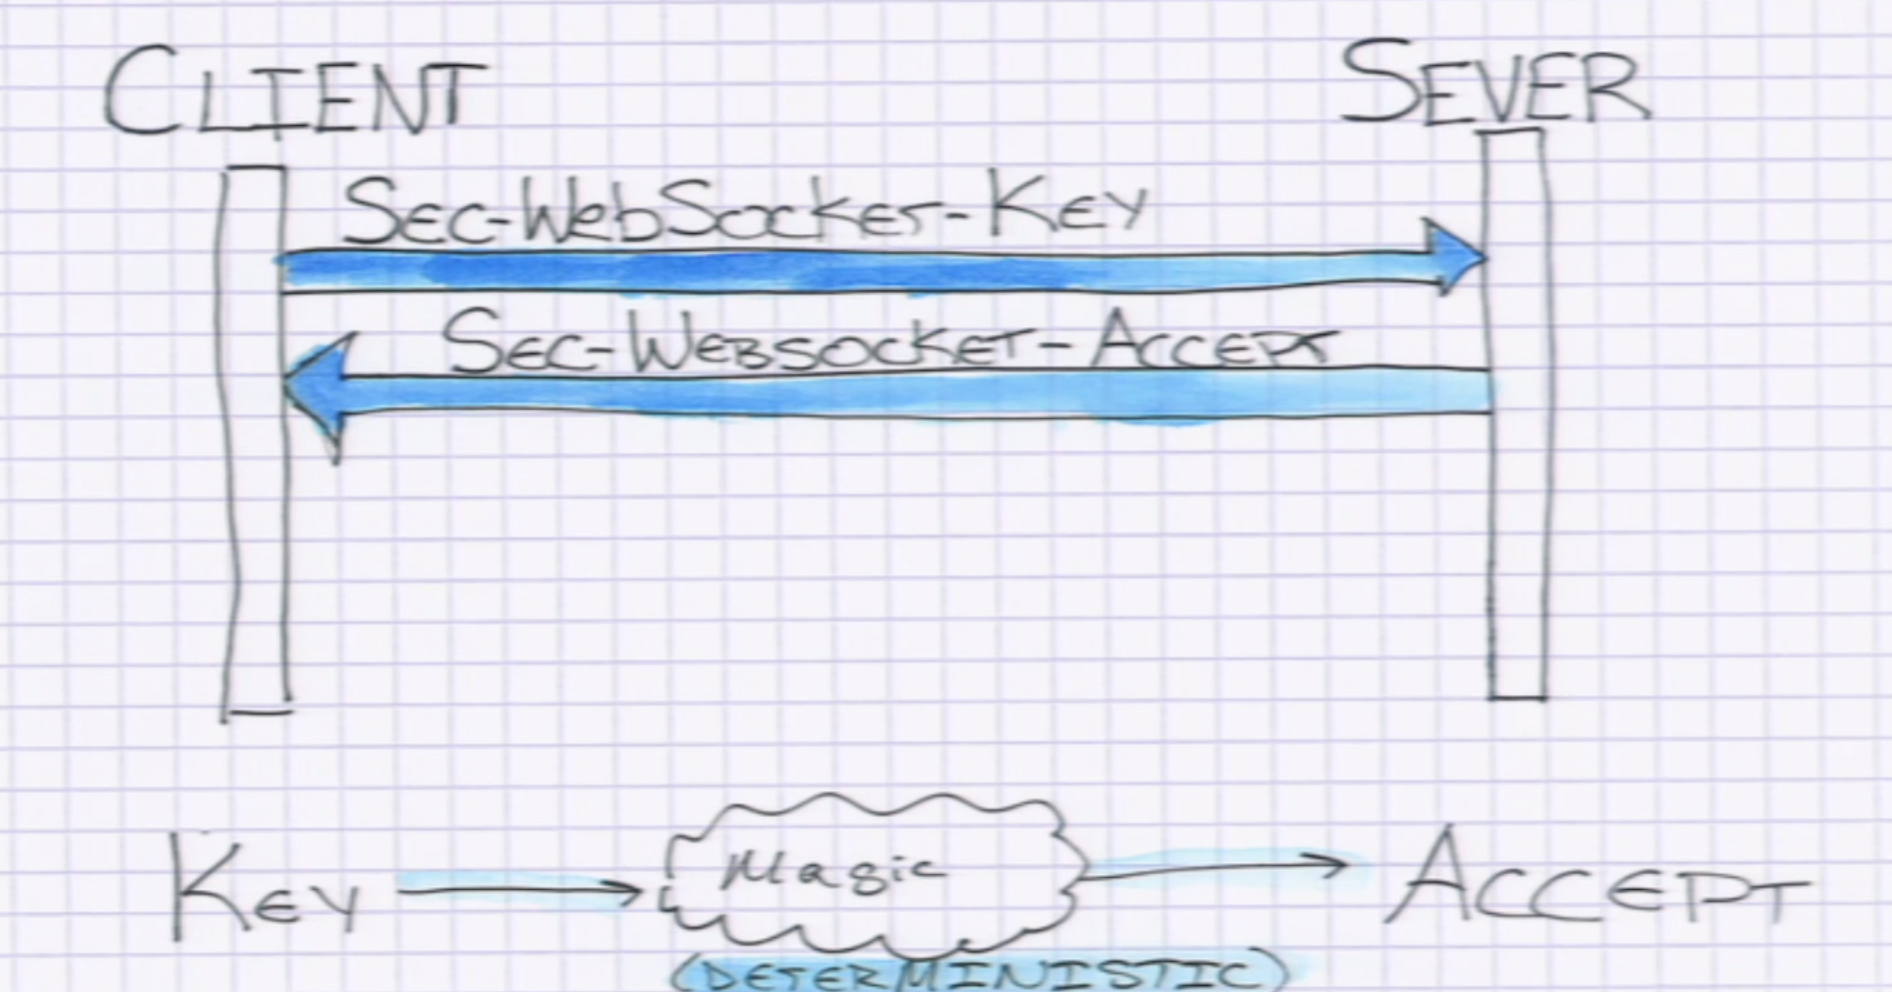 CLIENT
SEVER
SEC-WEbSOCKET-KEY
SEC-WEBSOCKET-ACCEPT
KEY
Magic
ACCEPT
(DETERMINISTIC)